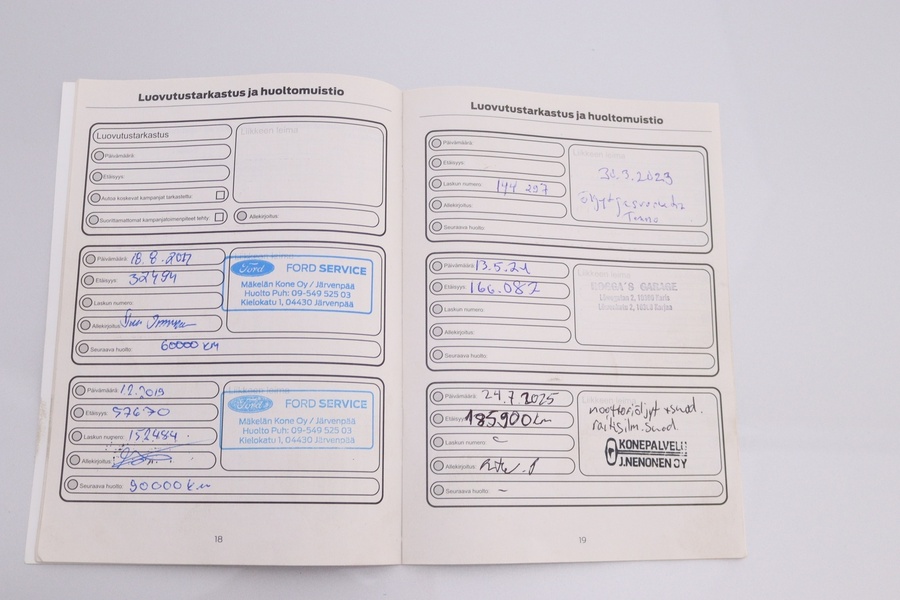 Luovutustarkastus ja huoltomuistio
Luovutustarkastus
Liikkeen leima
Päivämäärä:
Etäisyys:
Autoa koskevat kampanjat tarkastettu:
Suorittamattomat kampanjatoimenpiteet tehty:
Allekirjoitus:
Päivämäärä: 18.8.2017
Etäisyys: 32494
Laskun numero:
Allekirjoitus:
Seuraava huolto: 60000 KM
Ford FORD SERVICE
Mäkelän Kone Oy / Järvenpää
Huolto Puh: 09-549 525 03
Kielokatu 1, 04430 Järvenpää
Päivämäärä: 12.2019
Etäisyys: 57670
Laskun numero: 152484
Allekirjoitus:
Seuraava huolto: 90000 Km
Liikkeen leima
Ford FORD SERVICE
Mäkelän Kone Oy / Järvenpää
Huolto Puh: 09-549 525 03
Kielokatu 1, 04430 Järvenpää
18
Luovutustarkastus ja huoltomuistio
Päivämäärä:
Etäisyys:
Laskun numero: 144 297
Allekirjoitus:
Seuraava huolto:
Liikkeen leima
30.3.2023
Päivämäärä: 13.5.21
Etäisyys: 166.082
Laskun numero:
Allekirjoitus:
Seuraava huolto:
Liikkeen leima
GARAGE
Päivämäärä: 24.7.2025
Etäisyys: 185900 km
Laskun numero: -
Allekirjoitus:
Seuraava huolto: -
moottoriöljyt + suod.
raitisilm.suod
KONEPALVELU
J.NENONEN OY
19